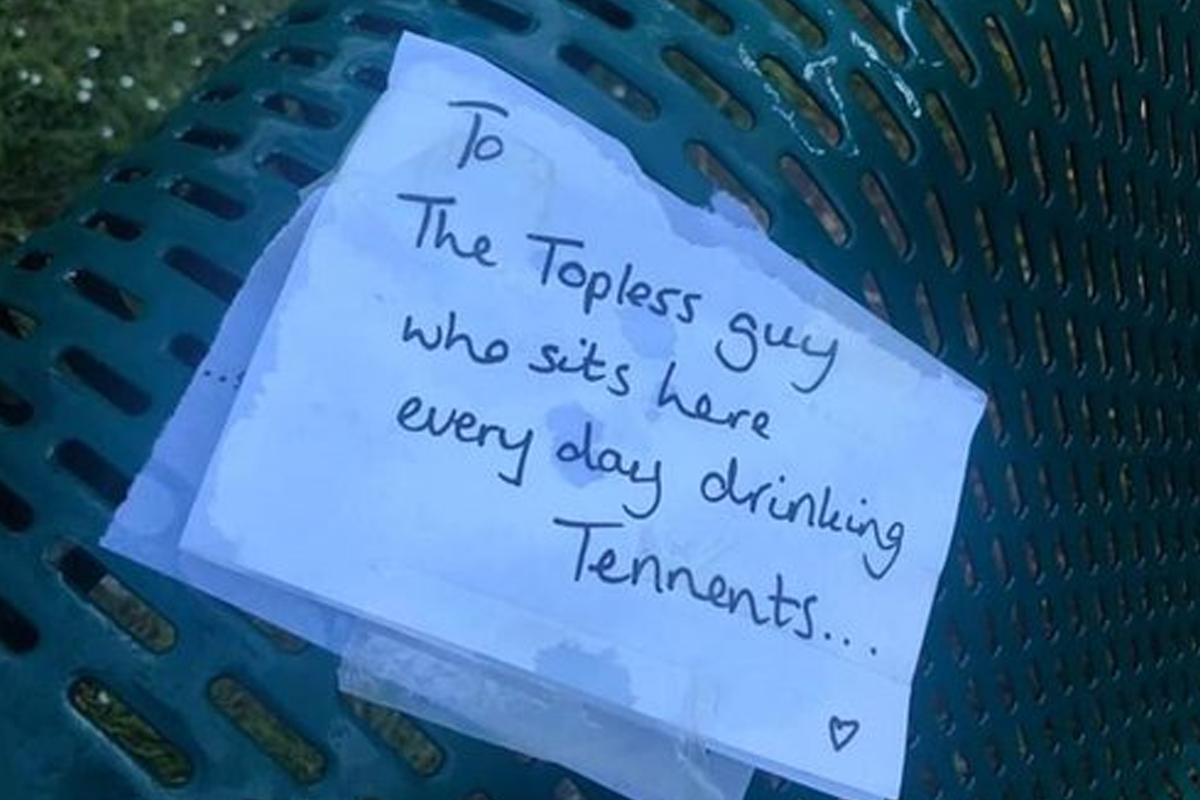 To
The Topless guy
who sits here
every day drinking
Tennents...
♡